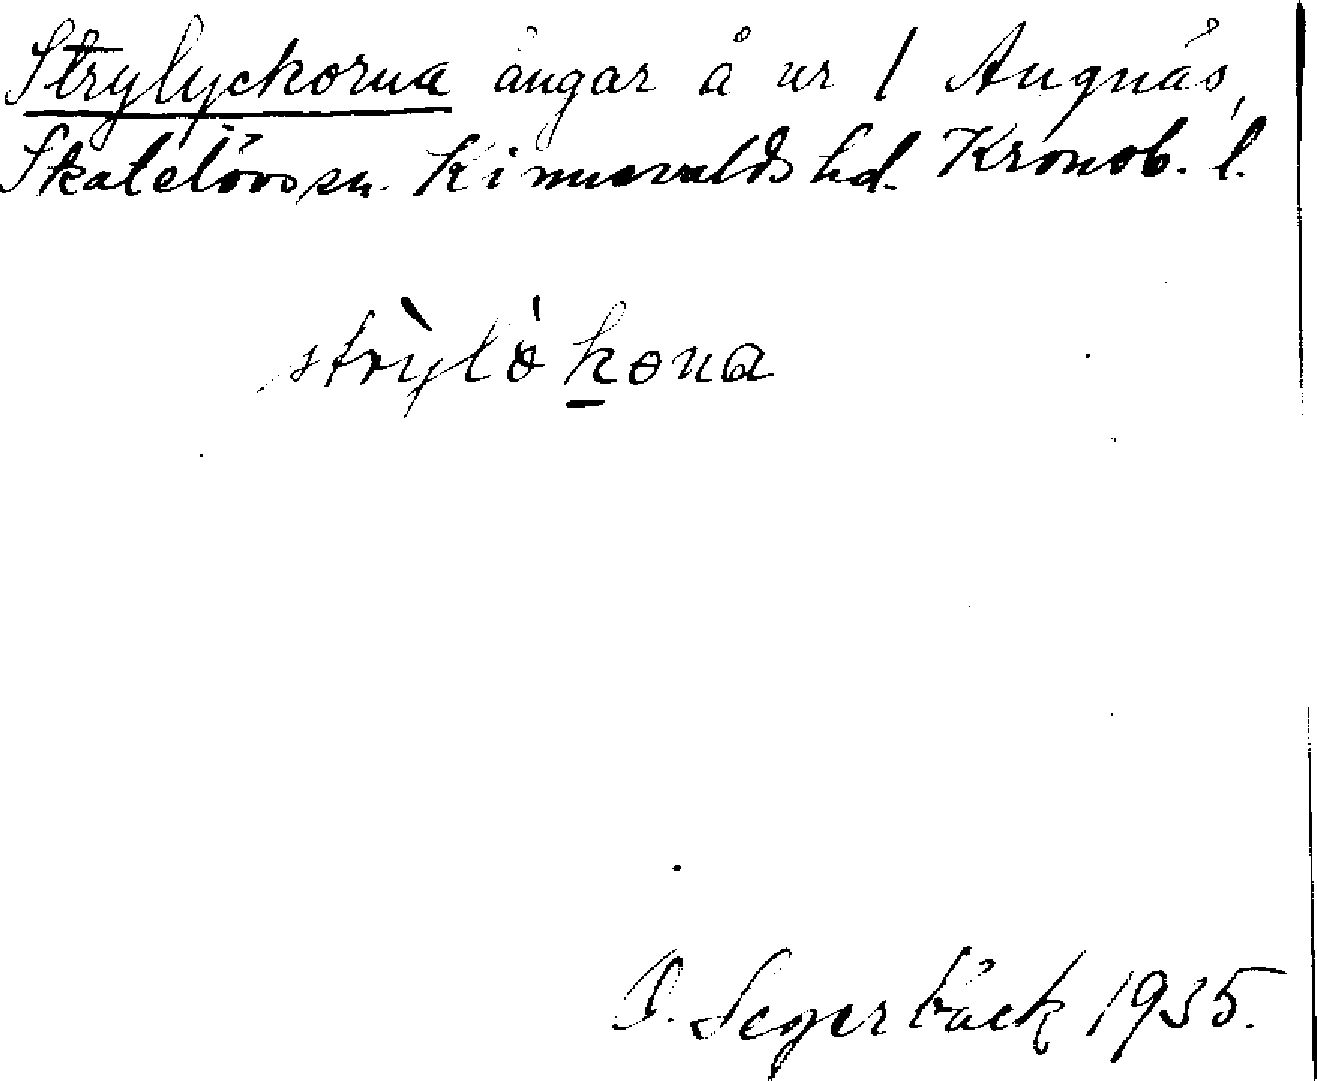 Strylyckorna ängar å nr 1 Angnäs,
Skatelövs sn. Kinnevalds hd. Kronob. l.
strỳlö̀kona
Segerbäck 1935.